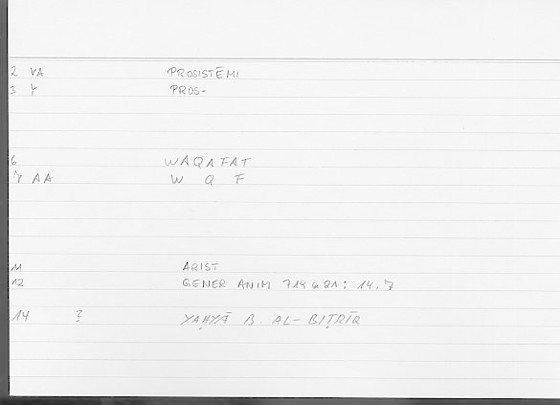 2 VA PROSISTĒMI
3 Y PROS-
6 WAQAFAT
7 AA W Q F
11 ARIST
12 GENER ANIM 719 a 21 : 14, 7
14 ? YAḤYĀ B. AL-BIṬRĪQ